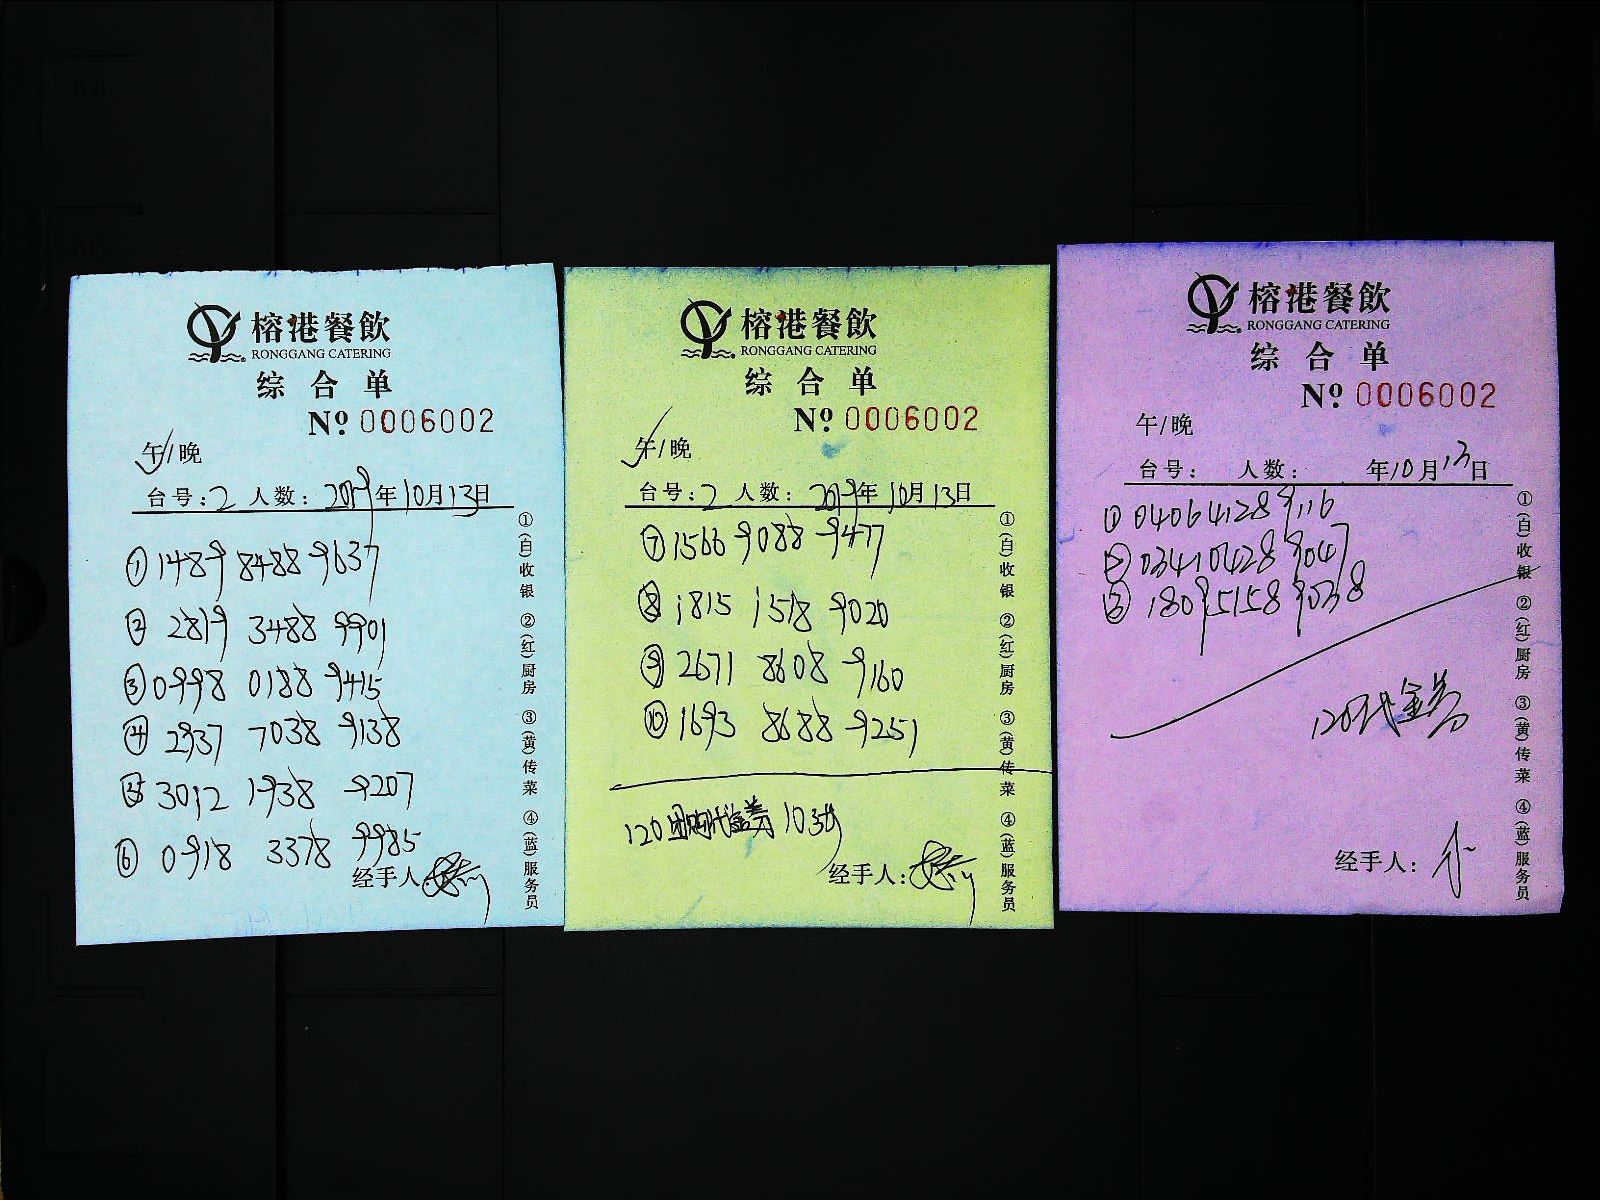 榕港餐飲
RONGGANG CATERING
综合单
Nº 0006002
午/晚
台号:2 人数: 2019年10月13日
① 1489 8488 9637
② 2819 3488 9901
③ 0998 0188 9415
④ 2937 7038 9138
⑤ 3012 1938 9207
⑥ 0918 3378 9985
经手人:
①(自)收银 ②(红)厨房 ③(黄)传菜 ④(蓝)服务员
榕港餐飲
RONGGANG CATERING
综合单
Nº 0006002
午/晚
台号:2 人数: 2019年10月13日
⑦ 1566 9088 9477
⑧ 1815 1518 9020
⑨ 2671 8608 9160
⑩ 1693 8688 9251
120团购代金券10张
经手人:
①(自)收银 ②(红)厨房 ③(黄)传菜 ④(蓝)服务员
榕港餐飲
RONGGANG CATERING
综合单
Nº 0006002
午/晚
台号: 人数: 年10月13日
① 040641289116
② 034104289047
③ 180951589038
120代金券
经手人:
①(自)收银 ②(红)厨房 ③(黄)传菜 ④(蓝)服务员